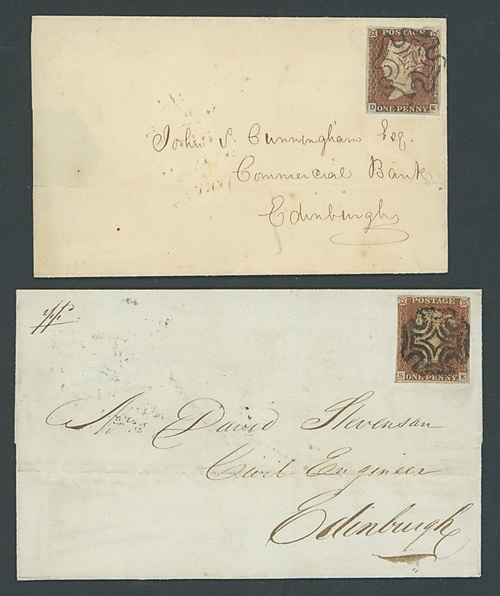 POSTAGE
D K
ONE PENNY
John S. Cunningham Esq.
Commercial Bank
Edinburgh
POSTAGE
S K
ONE PENNY
David Stevenson
Civil Engineer
Edinburgh